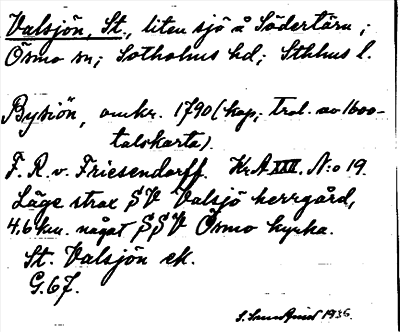 Valsjön, St., liten sjö å Södertörn;
Ösmo sn; Sotholms hd; Sthlms l.
Bysiön, omkr. 1790 (kop; trol. av 1600-
talskarta).
F. R. v. Friesendorff. KrA XXII. N:o 19.
Läge strax SV Valsjö herrgård,
4,6 km. något SSV Ösmo kyrka.
St. Valsjön ek.
G. 67.
S. Sundquist 1936